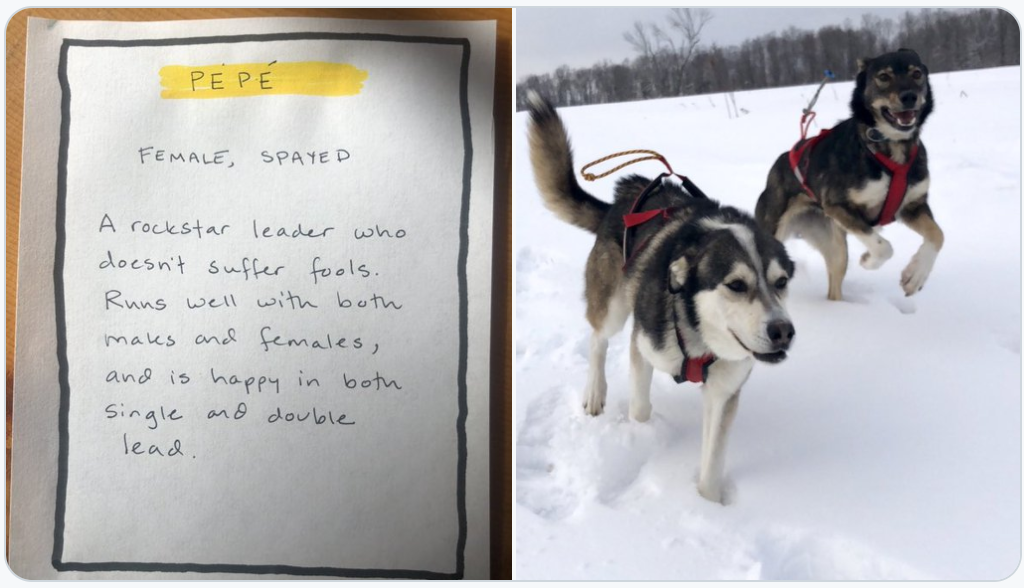 PÉPÉ
FEMALE, SPAYED
A rockstar leader who
doesn't suffer fools.
Runs well with both
males and females,
and is happy in both
single and double
lead.